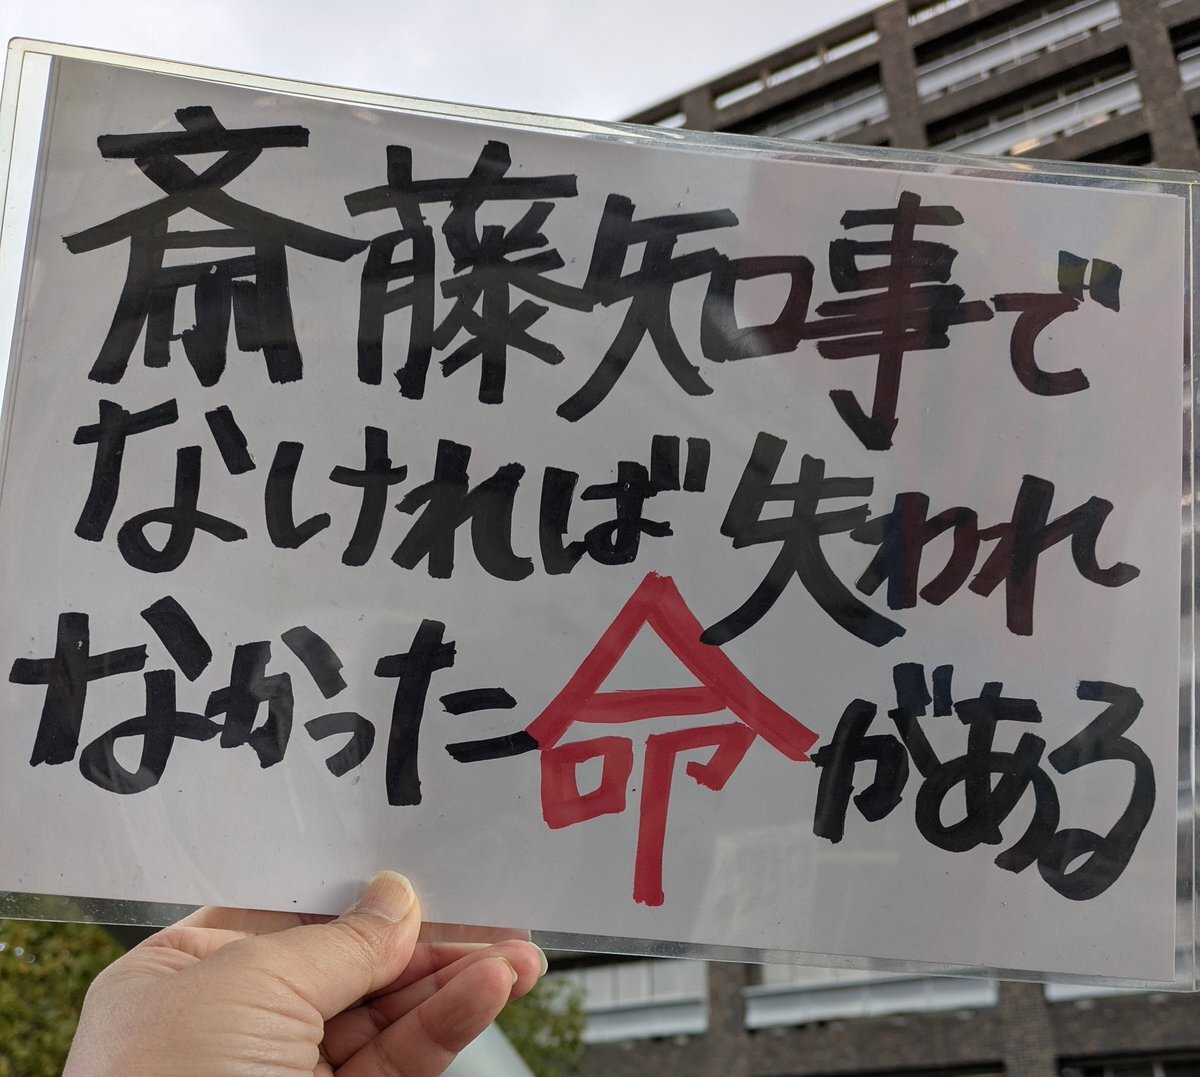 斎藤知事で
なければ失われ
なかった命がある